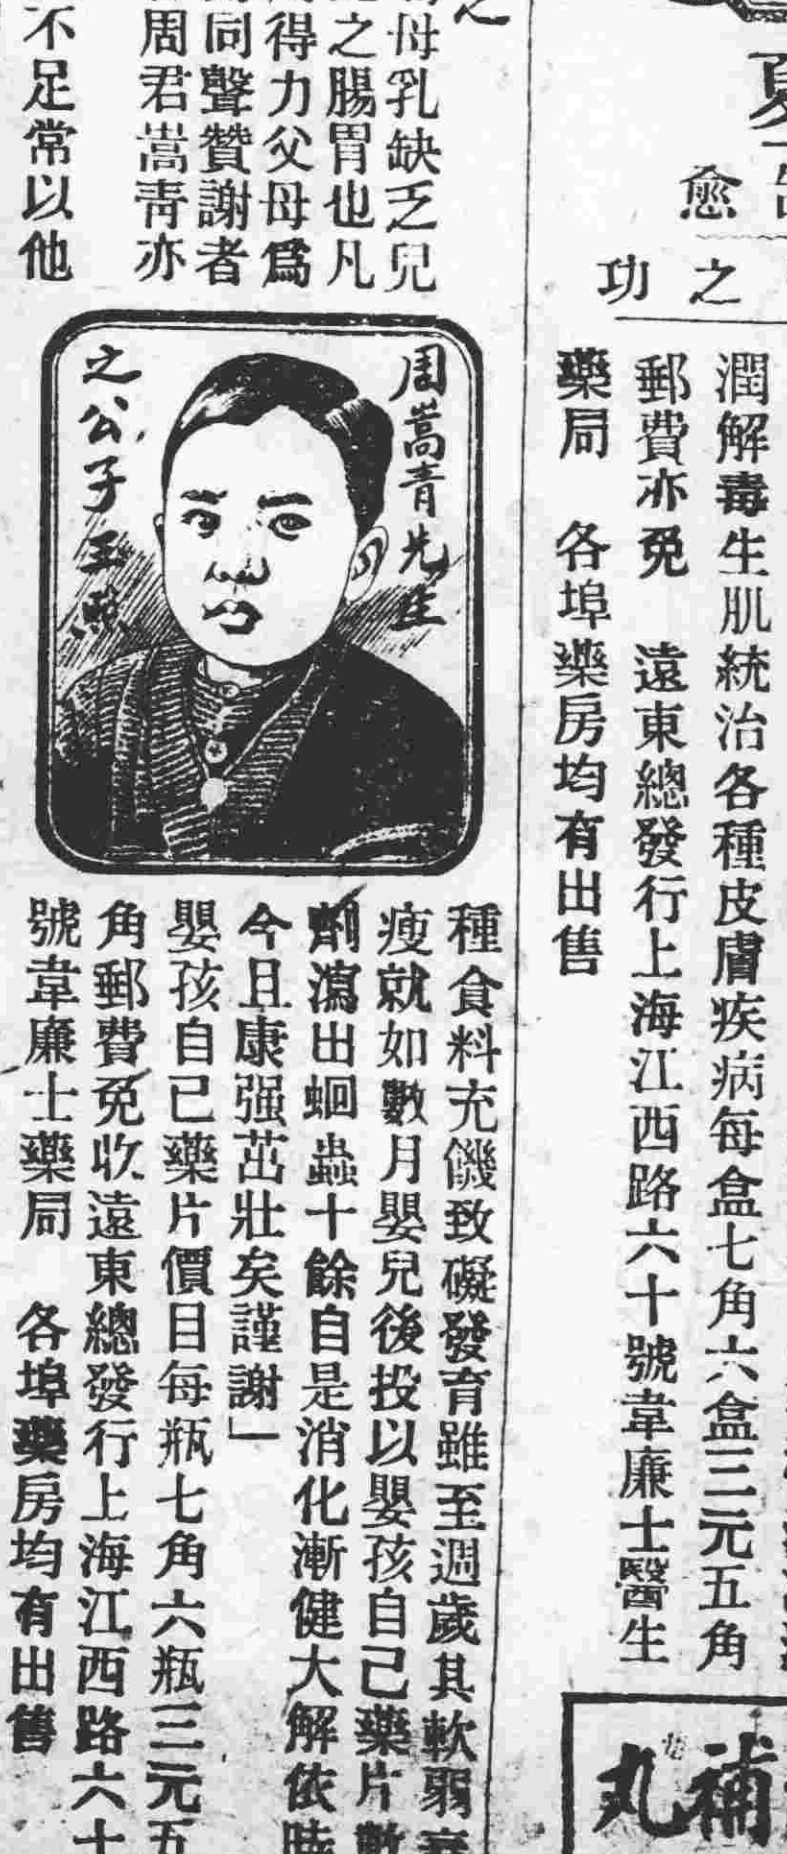 愈
之功
潤解毒生肌統治各種皮膚疾病每盒七角六盒三元五角
郵費亦免 遠東總發行上海江西路六十號韋廉士醫生
藥局 各埠藥房均有出售
補
丸
之
母乳缺乏兒
之腸胃也凡
得力父母爲
同聲贊謝者
周君嵩青亦
不足常以他
周嵩青先生
之公子玉熙
種食料充饑致礙發育雖至週歲其軟弱
瘦就如數月嬰兒後投以嬰孩自己藥片數
劑瀉出蛔蟲十餘自是消化漸健大解依時
今且康强茁壯矣謹謝」
嬰孩自己藥片價目每瓶七角六瓶三元五
角郵費免收遠東總發行上海江西路六十
號韋廉士藥局 各埠藥房均有出售